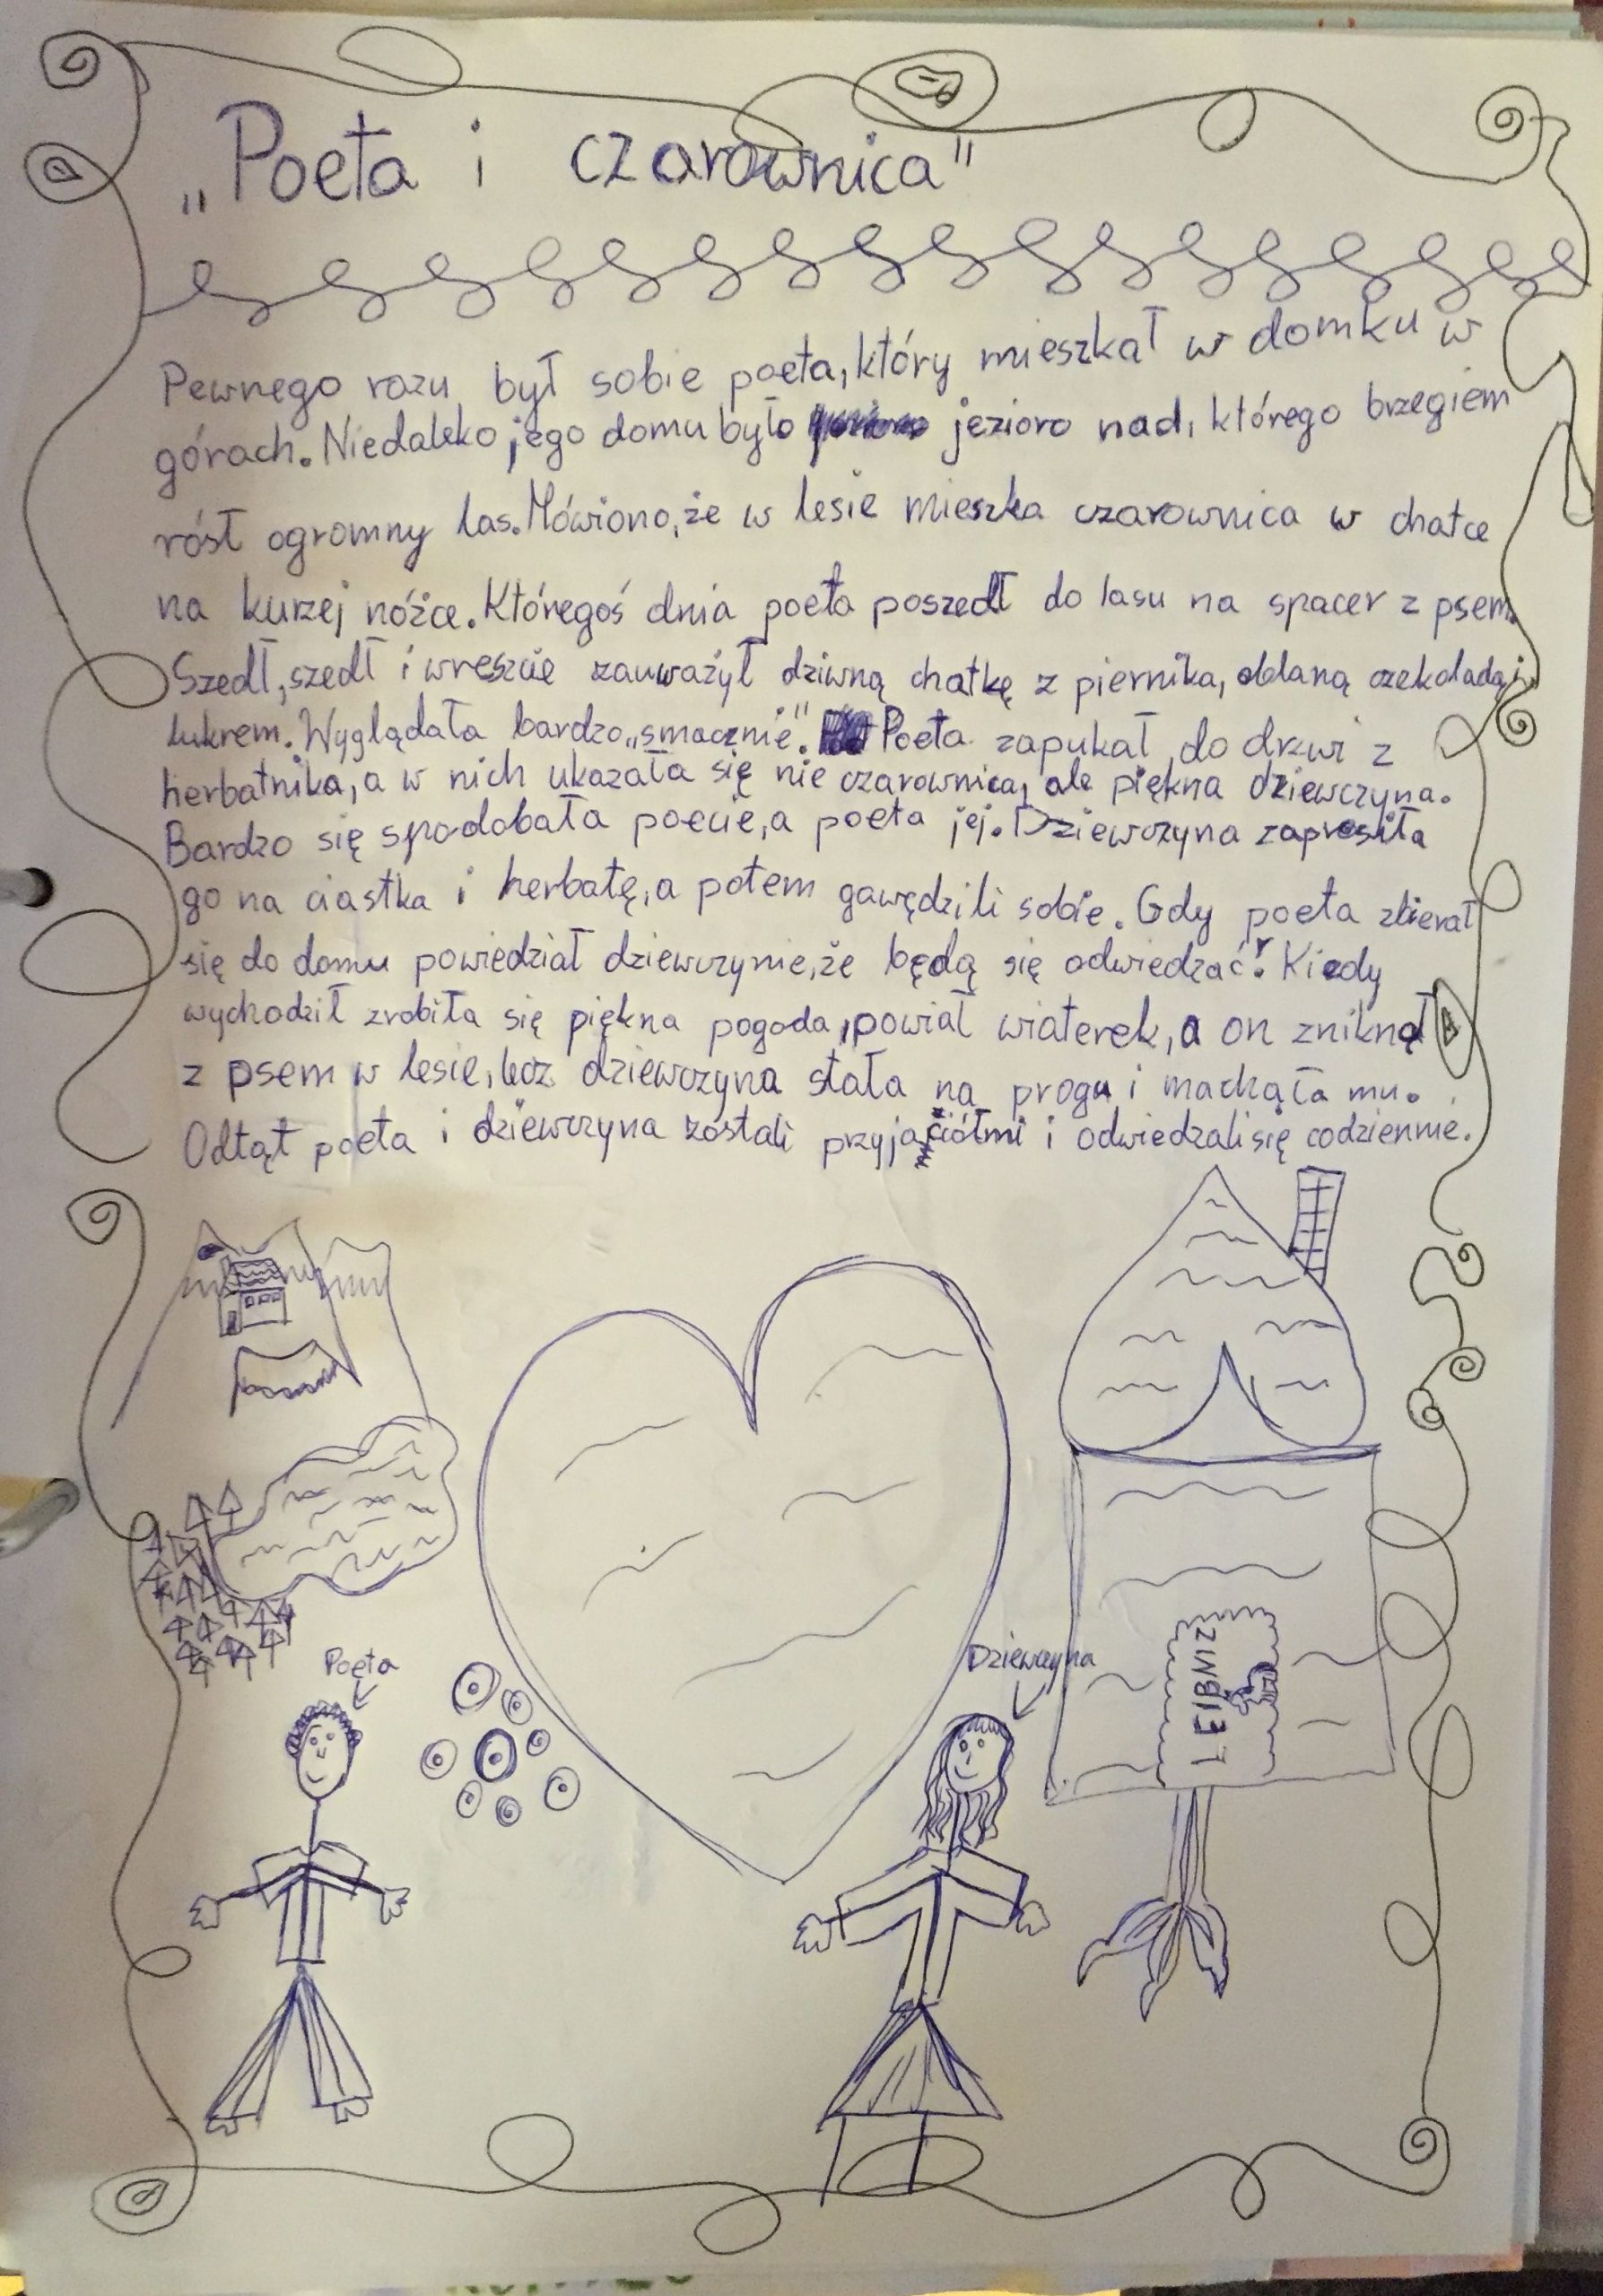 „Poeta i czarownica"
Pewnego razu był sobie poeta, który mieszkał w domku w
górach. Niedaleko jego domu było jezioro nad, którego brzegiem
rósł ogromny las. Mówiono, że w lesie mieszka czarownica w chatce
na kurzej nóżce. Któregoś dnia poeta poszedł do lasu na spacer z psem.
Szedł, szedł i wreszcie zauważył dziwną chatkę z piernika, oblaną czekoladą i
lukrem. Wyglądała bardzo „smacznie". Poeta zapukał do drzwi z
herbatnika, a w nich ukazała się nie czarownica, ale piękna dziewczyna.
Bardzo się spodobała poecie, a poeta jej. Dziewczyna zaprosiła
go na ciastka i herbatę, a potem gawędzili sobie. Gdy poeta zbierał
się do domu powiedział dziewczynie, że będą się odwiedzać. Kiedy
wychodził zrobiła się piękna pogoda, powiał wiaterek, a on zniknął
z psem w lesie, lecz dziewczyna stała na progu i machała mu.
Odtąt poeta i dziewczyna zostali przyjaciółmi i odwiedzali się codziennie.
Poeta
Dziewczyna
LEIBNIZ